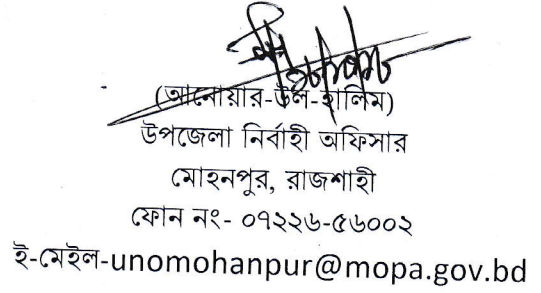 (আনোয়ার-উল-হালিম)
উপজেলা নির্বাহী অফিসার
মোহনপুর, রাজশাহী
ফোন নং- ০৭২২৬-৫৬০০২
ই-মেইল-unomohanpur@mopa.gov.bd